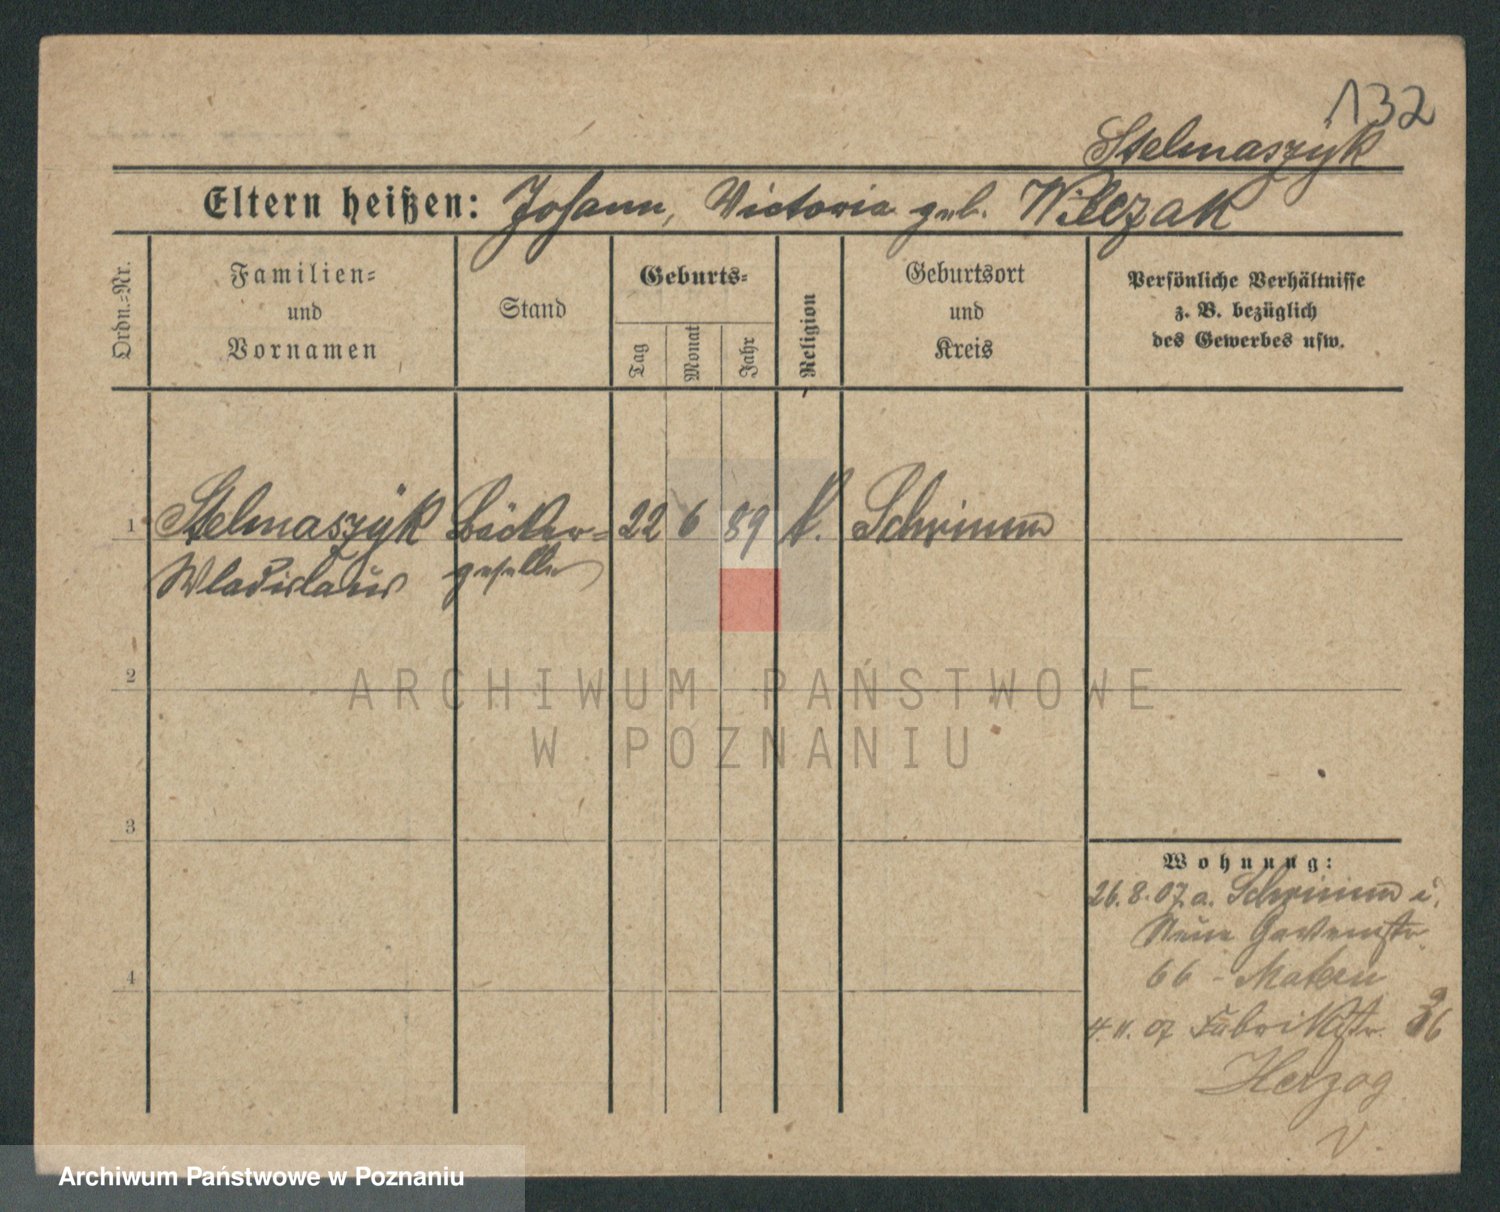 132
Stelmaszÿk
Eltern heißen: Johann, Victoria geb. Wilczak
Ordn.=Nr.
Familien=
und
Vornamen
Stand
Geburts=
Tag
Monat
Jahr
Religion
Geburtsort
und
Kreis
Persönliche Verhältnisse
z. B. bezüglich
des Gewerbes usw.
1 Stelmaszÿk Bäcker= 22 6 89 k. Schrimm
Wladislaus geselle
2
3
4
Wohnung:
26. 8. 07. a. Schrimm i.
Neue Gartenstr.
66 -
4. 11. 07 Fabrikstr. 36
Herzog
V.
ARCHIWUM PAŃSTWOWE
W POZNANIU
Archiwum Państwowe w Poznaniu